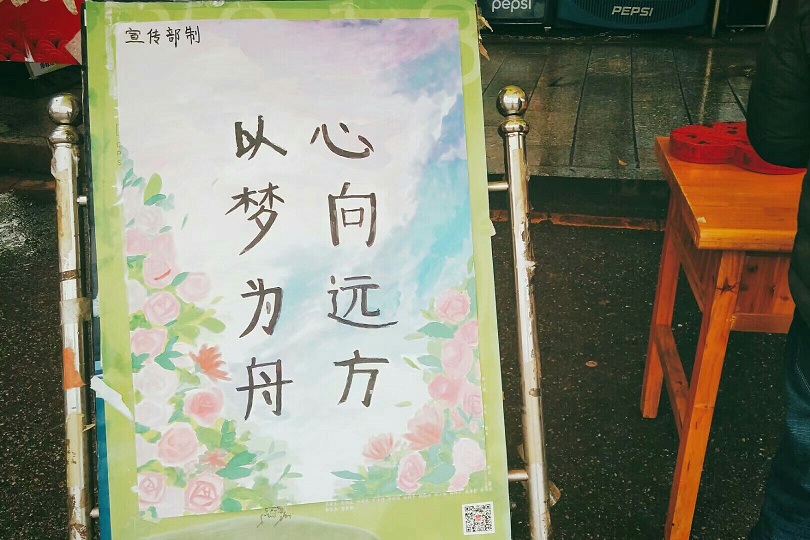 pepsi
PEPSI
宣传部制
心向远方
以梦为舟